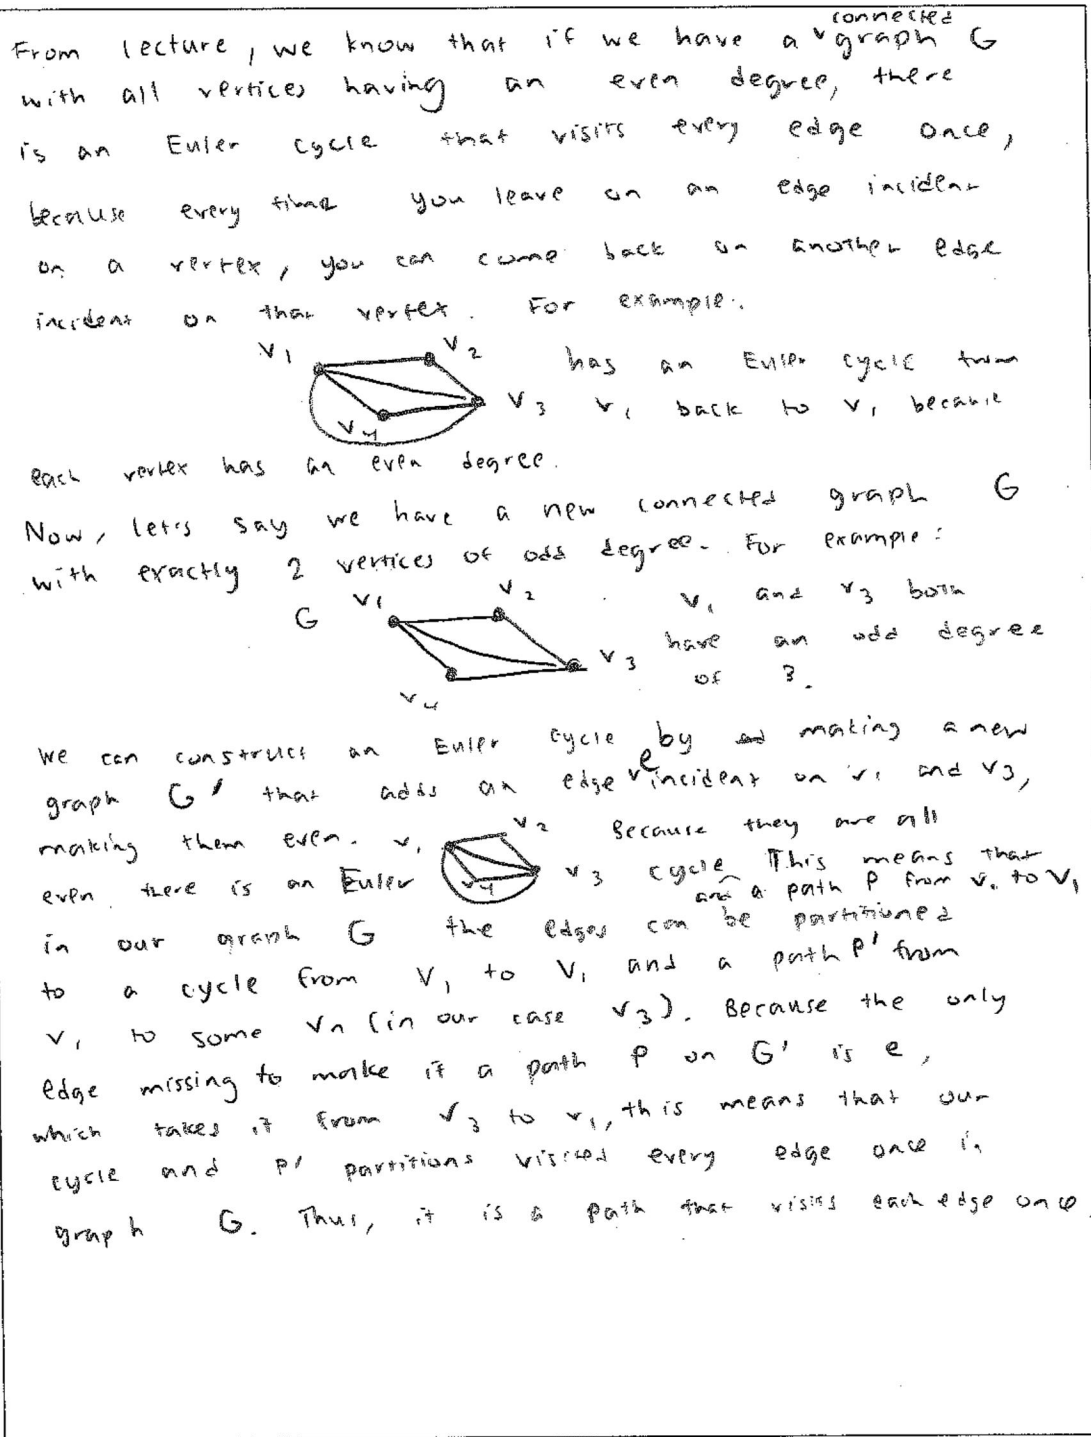 connected
From lecture, we know that if we have a ᵛ graph G
with all vertices having an even degree, there
is an Euler cycle that visits every edge once,
because every time you leave on an edge incident
on a vertex, you can come back on another edge
incident on that vertex. For example:
V1 V2 has an Euler cycle from
V4 V3 v1 back to v1 because
each vertex has an even degree.
Now, let's say we have a new connected graph G
with exactly 2 vertices of odd degree. For example:
G V1 V2 v1 and v3 both
V3 have an odd degree
V4 of 3.
We can construct an Euler cycle by making a new
graph G' that adds an edge e incident on v1 and v3,
making them even. v1 v2 Because they are all
even there is an Euler v4 v3 cycle. This means that
and a path P from v1 to v1
in our graph G the edges can be partitioned
to a cycle from V1 to V1 and a path P' from
v1 to some vn (in our case v3). Because the only
edge missing to make it a path P on G' is e,
which takes it from v3 to v1, this means that our
cycle and P' partitions visited every edge once in
graph G. Thus, it is a path that visits each edge once